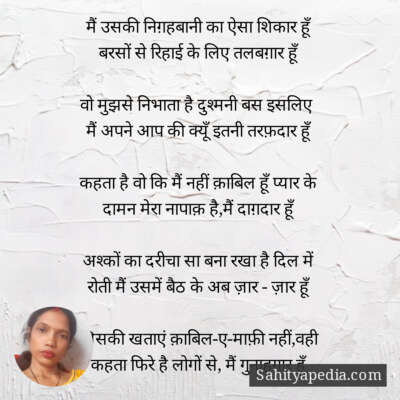 मैं उसकी निग़हबानी का ऐसा शिकार हूँ
बरसों से रिहाई के लिए तलबग़ार हूँ
वो मुझसे निभाता है दुश्मनी बस इसलिए
मैं अपने आप की क्यूँ इतनी तरफ़दार हूँ
कहता है वो कि मैं नहीं क़ाबिल हूँ प्यार के
दामन मेरा नापाक़ है,मैं दाग़दार हूँ
अश्कों का दरीचा सा बना रखा है दिल में
रोती मैं उसमें बैठ के अब ज़ार - ज़ार हूँ
खताएं क़ाबिल-ए-माफ़ी नहीं,वही
कहता फिरे है लोगों से, मैं
Sahityapedia.com